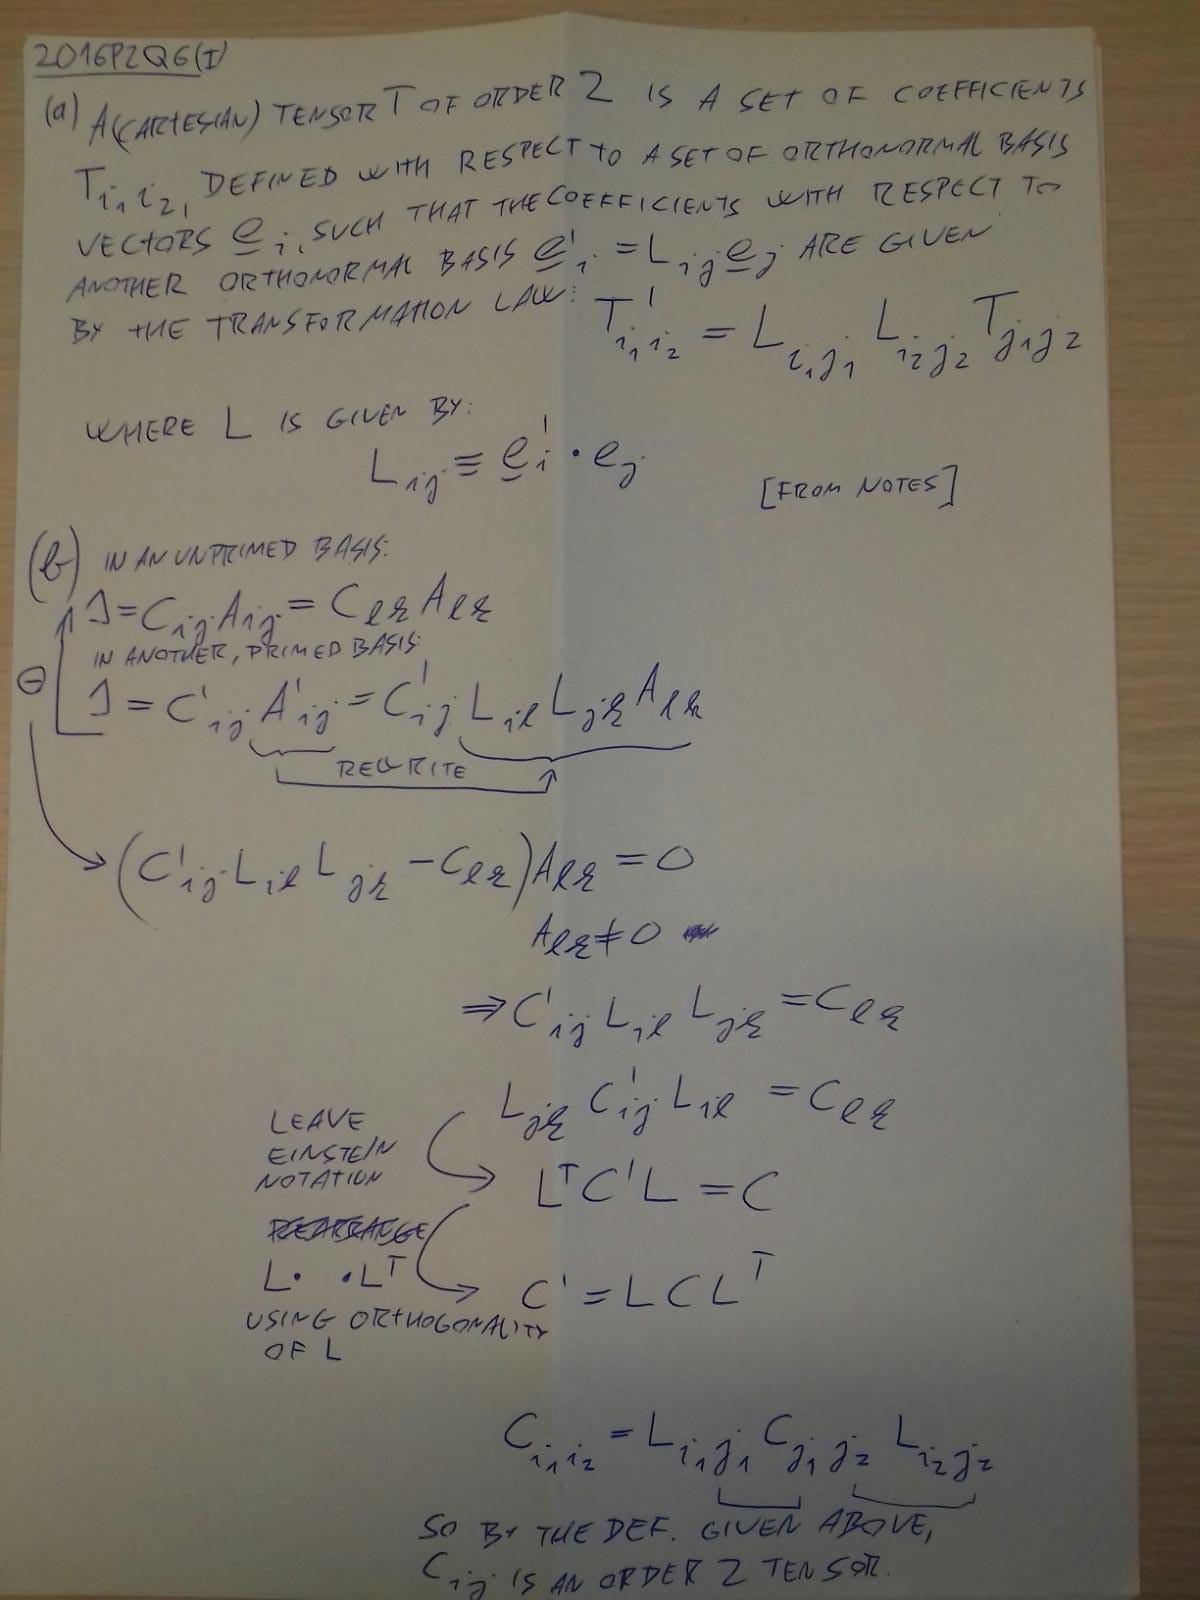 2016P2Q6(I)
(a) A (CARTESIAN) TENSOR T OF ORDER 2 IS A SET OF COEFFICIENTS
T_{i₁i₂}, DEFINED WITH RESPECT TO A SET OF ORTHONORMAL BASIS
VECTORS e_i, SUCH THAT THE COEFFICIENTS WITH RESPECT TO
ANOTHER ORTHONORMAL BASIS e'_i = L_{ij} e_j ARE GIVEN
BY THE TRANSFORMATION LAW:
T'_{i₁i₂} = L_{i₁j₁} L_{i₂j₂} T_{j₁j₂}
WHERE L IS GIVEN BY:
L_{ij} ≡ e'_i · e_j
[FROM NOTES]
(b) IN AN UNPRIMED BASIS:
1 = C_{ij} A_{ij} = C_{lk} A_{lk}
IN ANOTHER, PRIMED BASIS:
⊖
1 = C'_{ij} A'_{ij} = C'_{ij} L_{il} L_{jk} A_{lk}
REWRITE
(C'_{ij} L_{il} L_{jk} - C_{lk}) A_{lk} = 0
A_{lk} ≠ 0
⇒ C'_{ij} L_{il} L_{jk} = C_{lk}
L_{jk} C'_{ij} L_{il} = C_{lk}
LEAVE
EINSTEIN
NOTATION
L^T C' L = C
REARRANGE
L· ·L^T
C' = L C L^T
USING ORTHOGONALITY
OF L
C_{i₁i₂} = L_{i₁j₁} C_{j₁j₂} L_{i₂j₂}
SO BY THE DEF. GIVEN ABOVE,
C_{ij} IS AN ORDER 2 TENSOR.